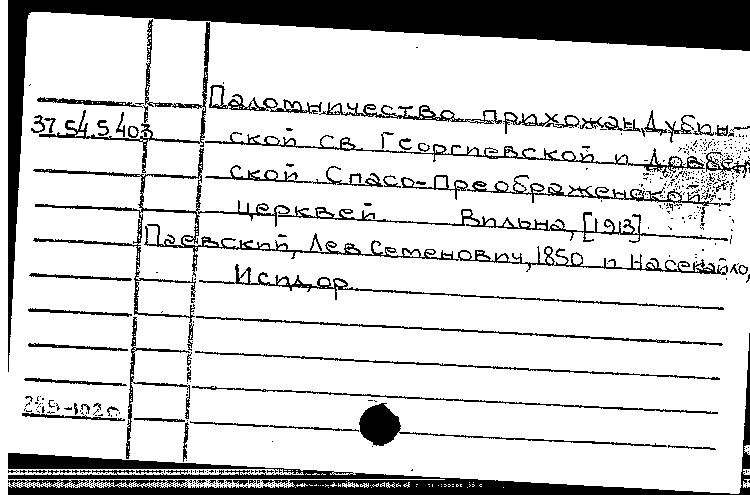 Паломничество прихожан Дубин-
37.54.5.403
ской св. Георгиевской и Довбен
ской Спасо-Преображенской
церквей. Вильна, [1913]
Паевский, Лев Семенович, 1850 и Насекайло,
Исидор
289-1020